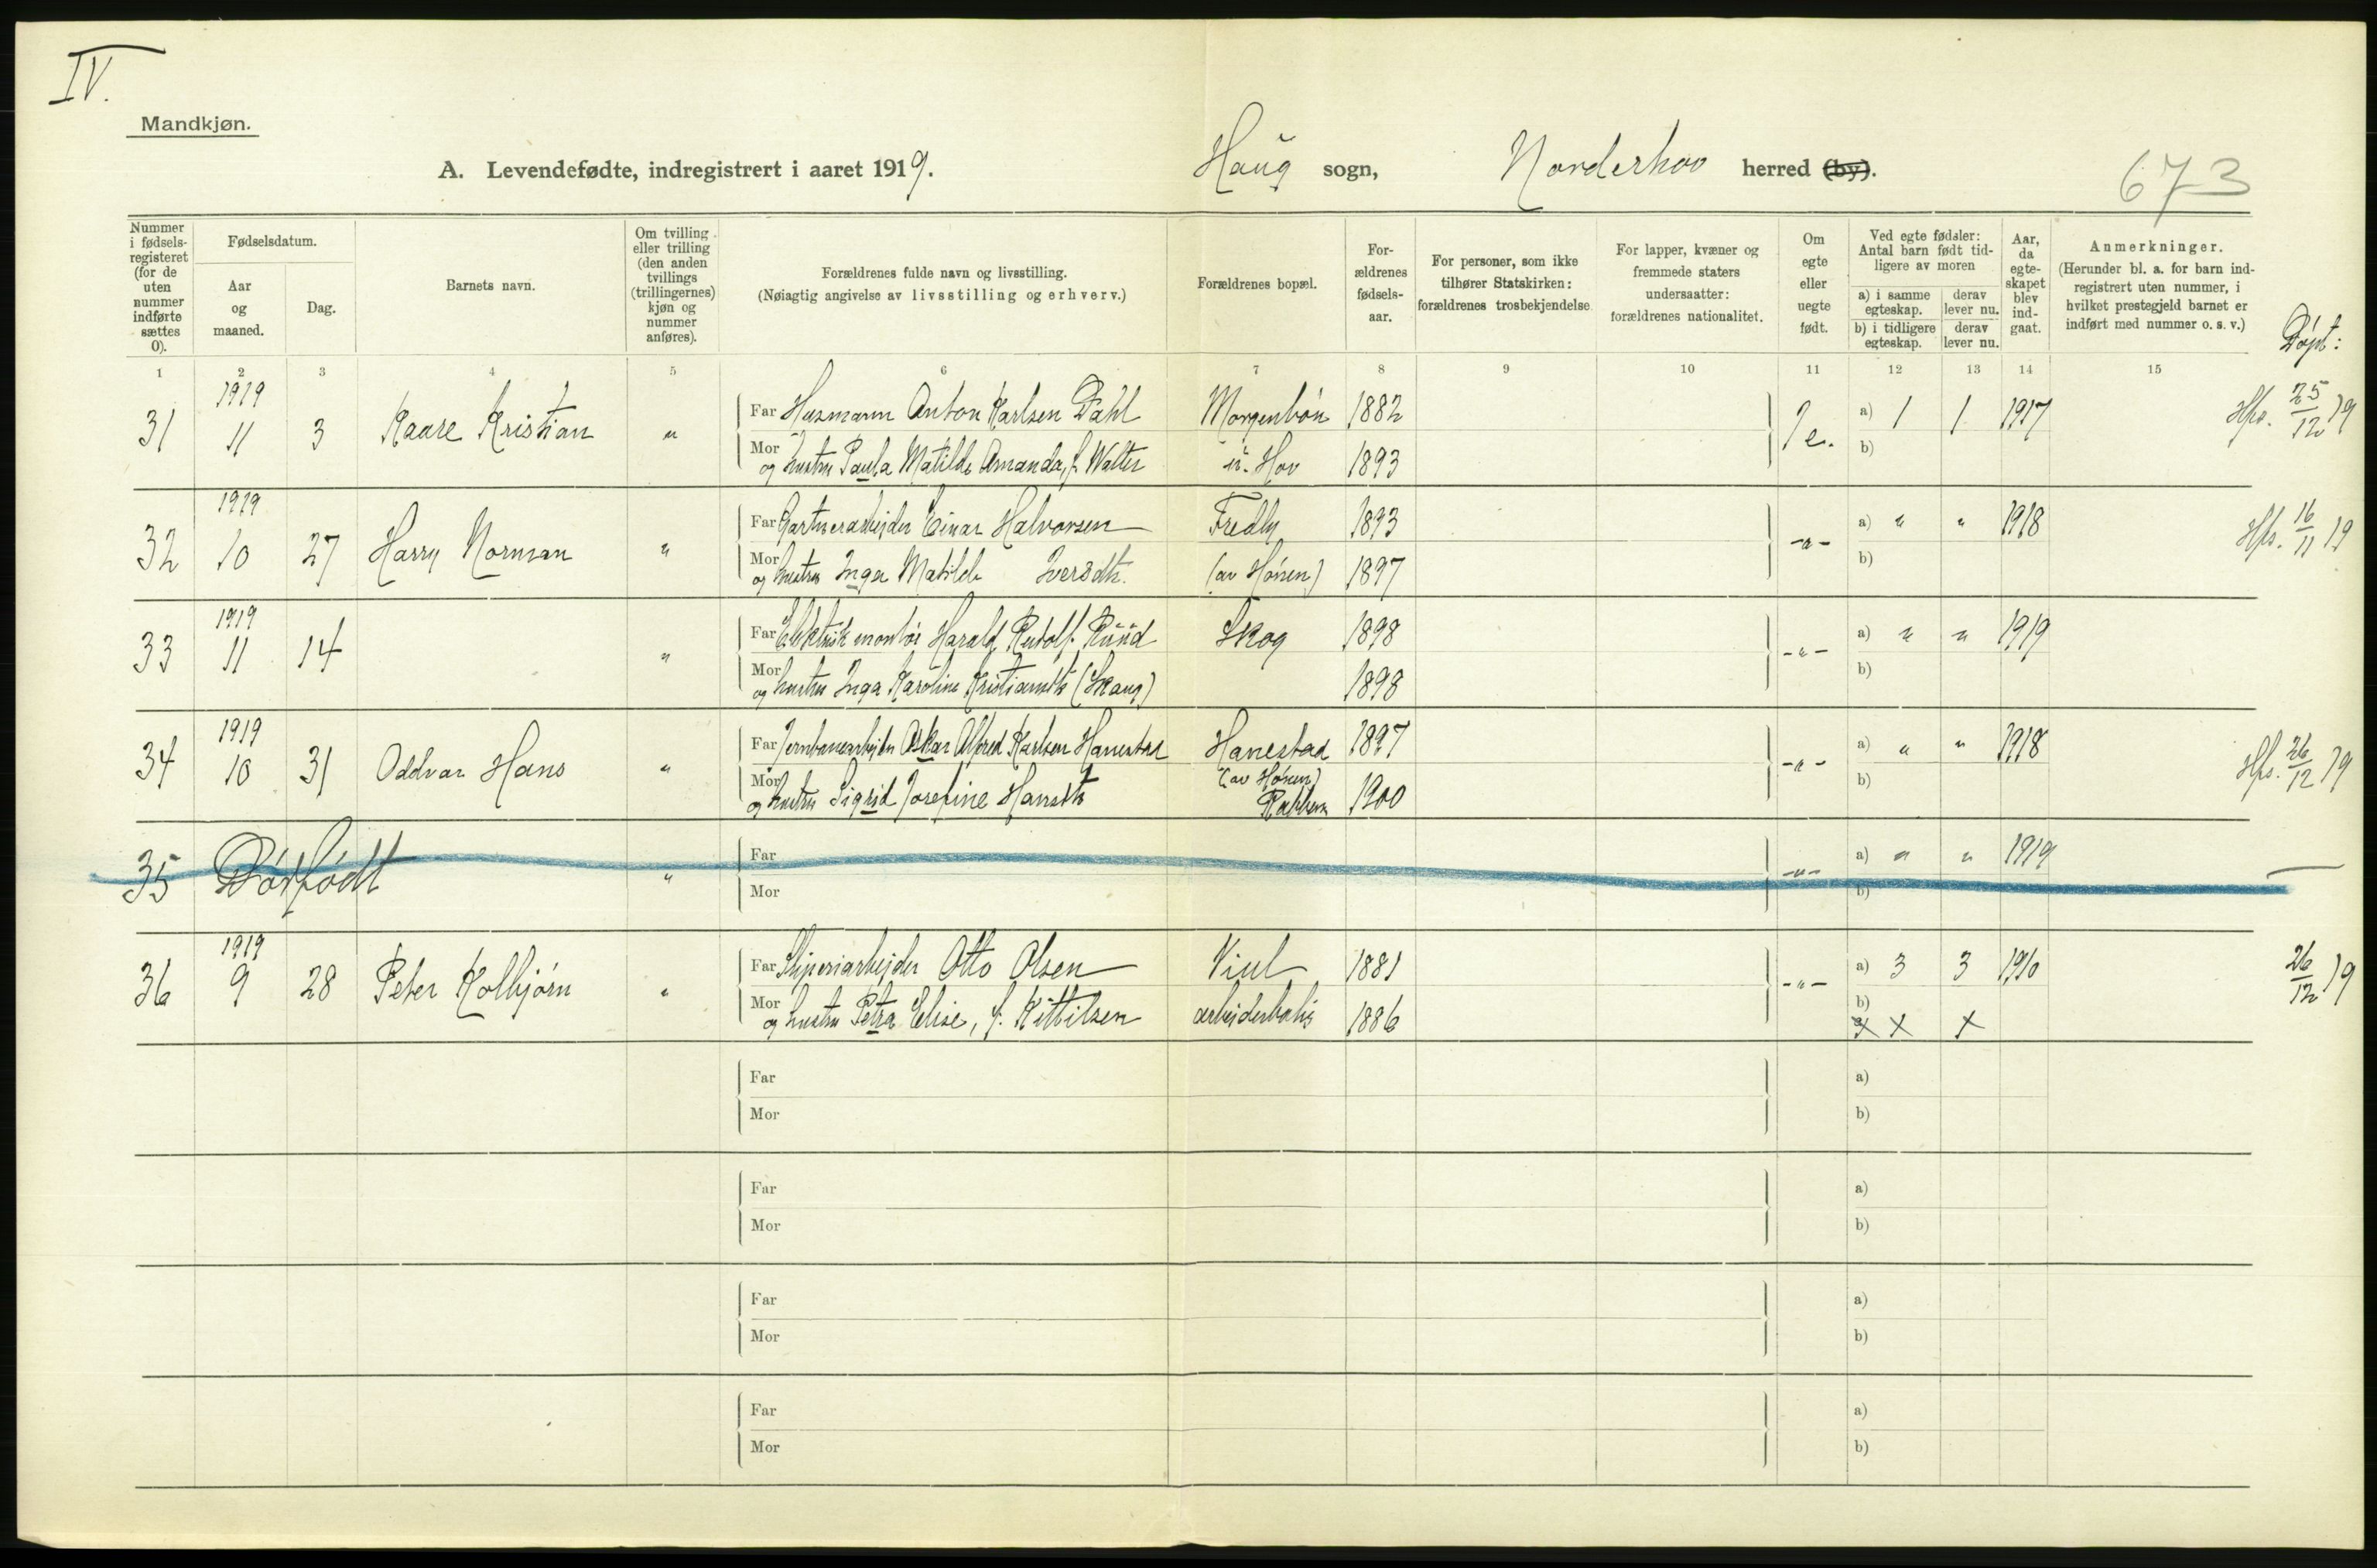 IV.
Mandkjøn.
A. Levendefødte, indregistrert i aaret 1919. Haug sogn, Norderhov herred (by).
673
Nummer i fødsels-registeret (for de uten nummer indførte sættes 0).
Fødselsdatum.
Aar og maaned.
Dag.
Barnets navn.
Om tvilling eller trilling (den anden tvillings (trillingernes) kjøn og nummer anføres).
Forældrenes fulde navn og livsstilling.
(Nøiagtig angivelse av livsstilling og erhverv.)
Forældrenes bopæl.
For-ældrenes fødsels-aar.
For personer, som ikke tilhører Statskirken: forældrenes trosbekjendelse
For lapper, kvæner og fremmede staters undersaatter: forældrenes nationalitet.
Om egte eller uegte født.
Ved egte fødsler: Antal barn født tid-ligere av moren
a) i samme egteskap. derav lever nu.
b) i tidligere egteskap. derav lever nu.
Aar, da egte-skapet blev ind-gaat.
Anmerkninger.
(Herunder bl. a. for barn ind-registrert uten nummer, i hvilket prestegjeld barnet er indført med nummer o. s. v.)
Døpt:
1 2 3 4 5 6 7 8 9 10 11 12 13 14 15
31 1919 11 3 Kaare Kristian " Far Husmann Anton Karlsen Dahl Morgenbøn 1882 e. a) 1 1 1917 Hps. 25/12 19
Mor og hustru Paula Matilde Amanda, f. Walter u. Hov 1893 b)
32 1919 10 27 Harry Norman " Far Gartnerarbeider Einar Halvorsen Fredly 1893 -"- a) " " 1918 Hps. 16/11 19
Mor og hustru Inga Matilde Iversdtr. (av Hønen) 1897 b)
33 1919 11 14 " Far Elektrisk montør Harald Rudolf Ruud Skog 1898 -"- a) " " 1919
Mor og hustru Inga Karoline Kristiansdtr (Skaug) 1898 b)
34 1919 10 31 Oddvar Hans " Far Jernbanearbeider Oskar Alfred Karlsen Hanestad Hanestad 1897 -"- a) " " 1918 Hps. 26/12 19
Mor og hustru Sigrid Josefine Hansdtr (av Hønen) 1900 b)
35 Dødfødt " Far -"- a) " " 1919 —
Mor b)
36 1919 9 28 Peter Kolbjørn " Far Sliperiarbeider Otto Olsen Viul 1881 -"- a) 3 3 1910 26/12 19
Mor og hustru Petra Elise, f. Kittilsen arbeiderbolig 1886 b) x x x
Far a)
Mor b)
Far a)
Mor b)
Far a)
Mor b)
Far a)
Mor b)